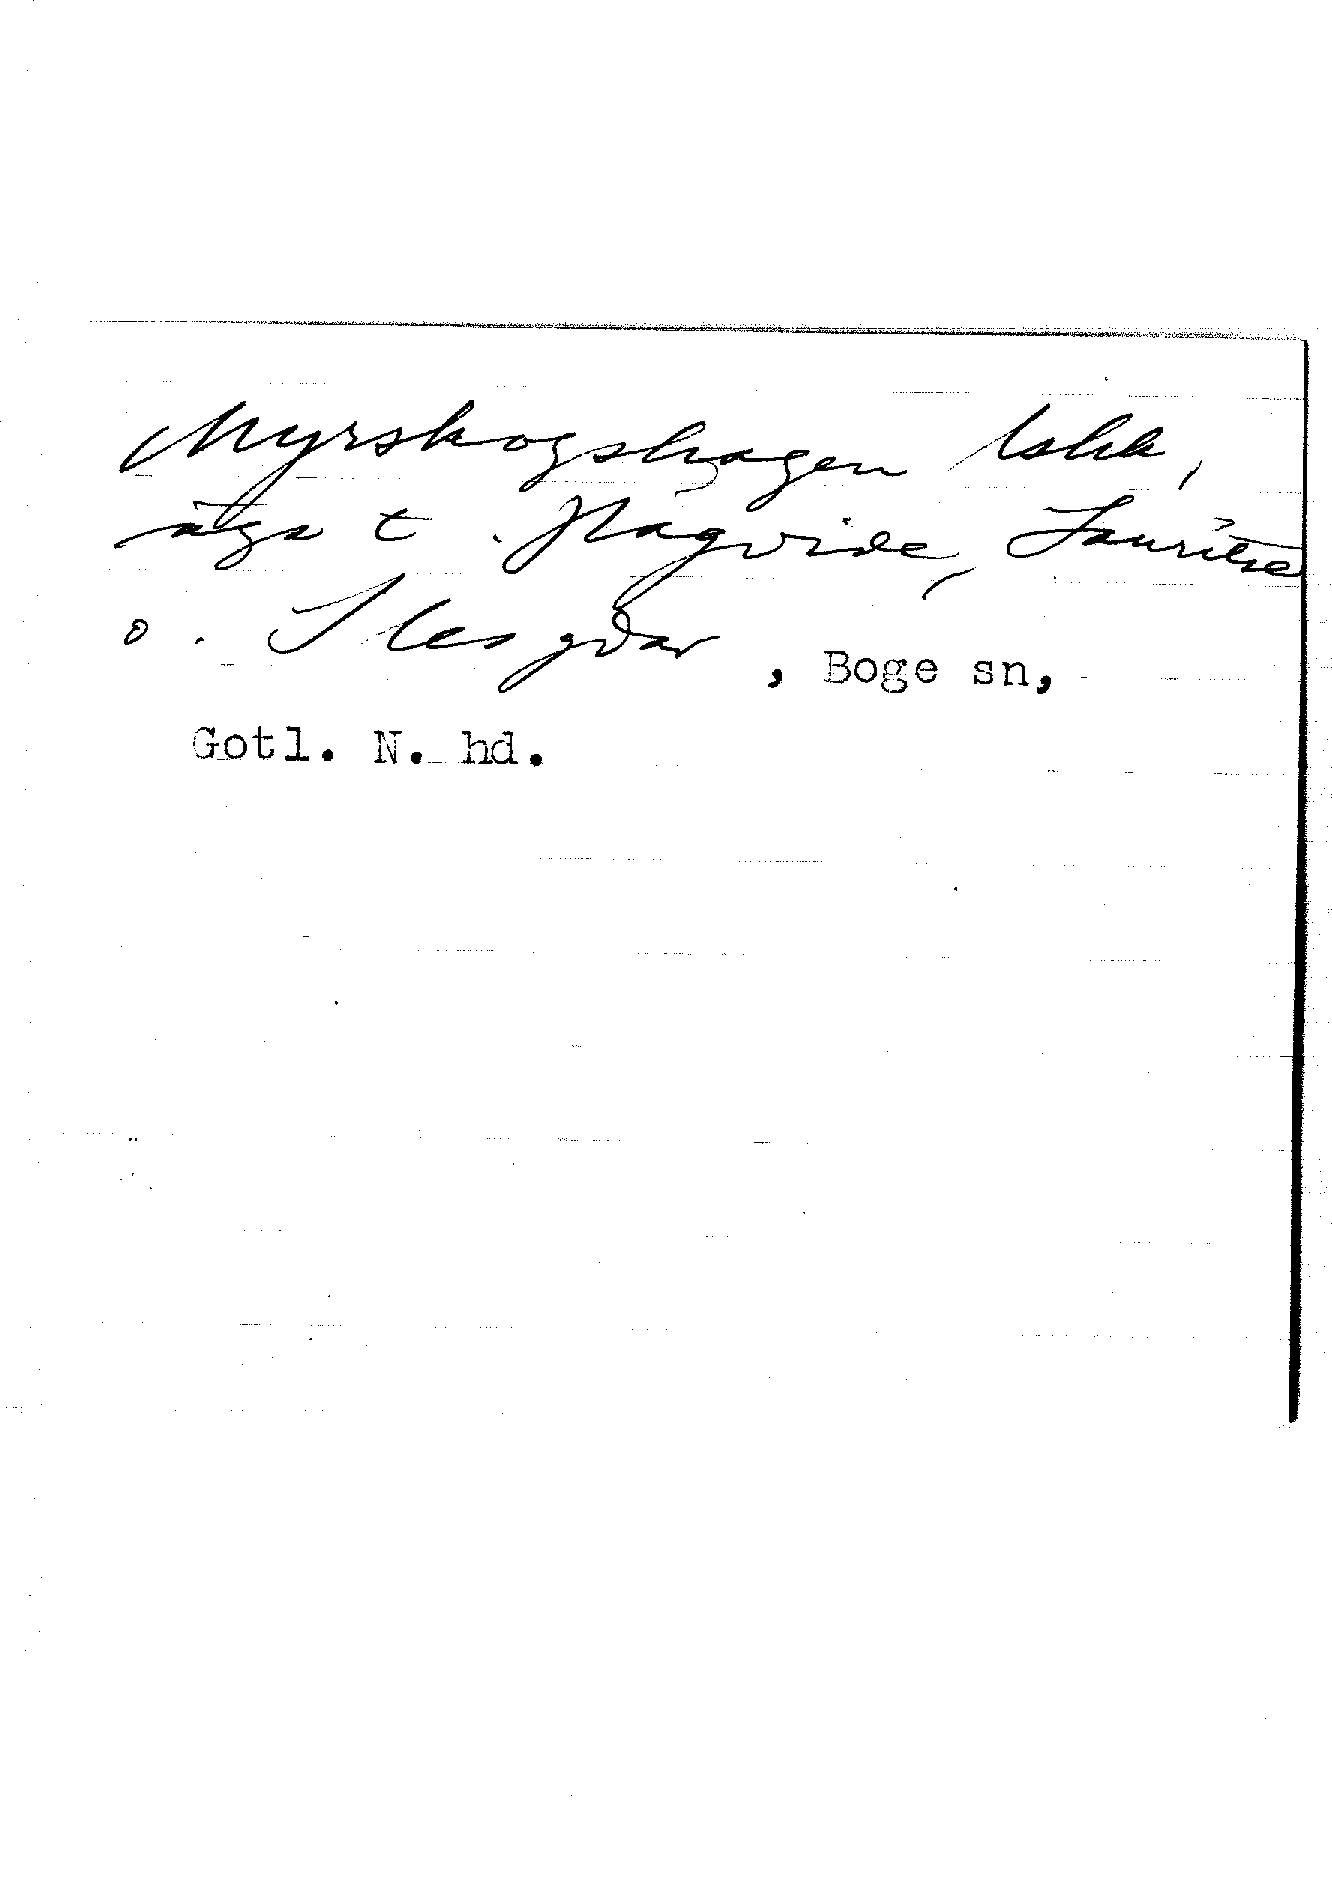 Myrskogshagen 
äga t. Hägvide, Lauritse
o. Iles gdar, Boge sn,
Gotl. N. hd.